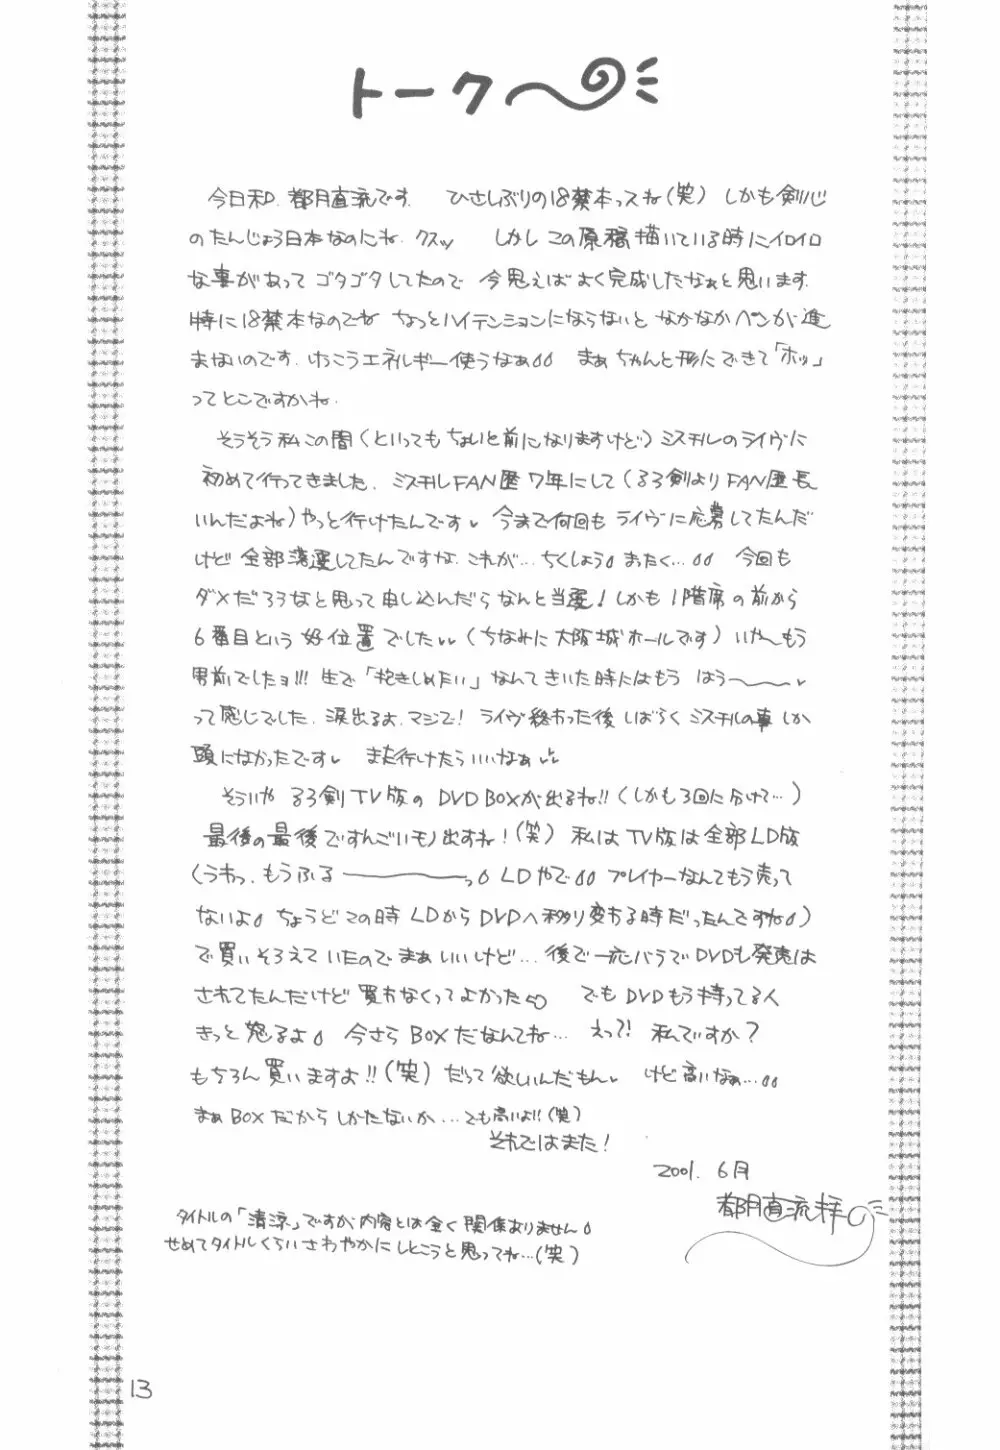 トーク
今日和. 都月直流です. ひさしぶりの18禁本ってね(笑) しかも剣心
のたんじょう日本なのにね. クスッ しかしこの原稿描いている時にイロイロ
な事があって ゴタゴタしてたので 今思えばよく完成したなぁと思います.
特に18禁本なのでね ちょっとハイテンションにならないと なかなかペンが進
まないのです. けっこうエネルギー使うなぁ まぁちゃんと形にできて「ホッ」
ってとこですかね.
そうそう私この間(といってもちょいと前になりますけど)ミスチルのライヴに
初めて行ってきました. ミスチルFAN歴7年にして(るろ剣よりFAN歴長
いんだよね)やっと行けたんです♥ 今まで何回もライヴに応募してたんだ
けど全部落選してたんですな. これが…ちくしょう まったく… 今回も
ダメだろうなと思って申し込んだらなんと当選! しかも1階席の前から
6番目という好位置でした♥♥ (ちなみに大阪城ホールです) いや〜もう
男前でしたョ!!! 生で「抱きしめたい」なんてきいた時にはもう はう〜〜♥
って感じでした. 涙出るよ. マジで! ライヴ終わった後しばらくミスチルの事しか
頭になかったです♥ また行けたらいいなぁ
そういや るろ剣TV版のDVD BOXが出るね!! (しかも3回に分けて…)
最後の最後ですんごいモノ出すね! (笑) 私はTV版は全部LD版
(うわっ. もうふる────っ LDやで プレイヤーなんてもう売って
ないよ ちょうどこの時LDからDVDへ移り変わる時だったんですね)
で買いそろえていたのでまぁいいけど… 後で一応バラでDVDも発売は
されてたんだけど買わなくってよかった でもDVDもう持ってる人
きっと怒るよ 今さらBOXだなんてね… えっ?! 私ですか?
もちろん買いますよ!! (笑) だって欲しいんだもん♥ けど高いなぁ…
まぁBOXだからしかたないか…でも高いよ!! (笑)
それではまた!
2001. 6月
都月直流拝
タイトルの「清涼」ですが、内容とは全く関係ありません
せめてタイトルくらいさわやかにしとこうと思ってね…(笑)
13